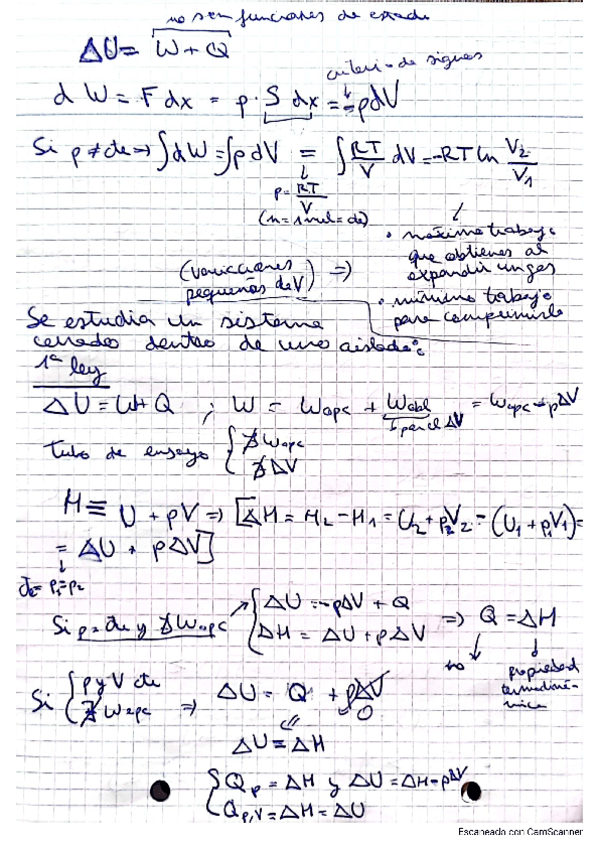 no son funciones de estado
ΔU = W + Q
criterio de signos
dW = F dx = p · S dx = -pdV
Si p ≠ cte ⇒ ∫dW = ∫p dV = ∫ RT/V dV = -RT ln V₂/V₁
p = RT/V
(n = 1 mol = cte)
• máximo trabajo
que obtienes al
expandir un gas
(variaciones
pequeñas de V) ⇒
• mínimo trabajo
para comprimirlo
Se estudia un sistema
cerrado dentro de uno aislado:
1ª ley
ΔU = W + Q ; W = Wopc + = Wopc - pΔV
Tubo de ensayo { ∄ Wopc
∄ ΔV
H ≡ U + pV ⇒ [ΔH = H₂ - H₁ = U₂ + p₂V₂ - (U₁ + p₁V₁) =
= ΔU + pΔV]
cte = p₁ = p₂
Si p = cte y ∄ Wopc { ΔU = -pΔV + Q
ΔH = ΔU + pΔV ⇒ Q = ΔH
no
propiedad
termodiná-
mica
Si { p y V cte
∄ Wopc ⇒ ΔU = Q + pΔV
0
ΔU = ΔH
{ Qp = ΔH y ΔU = ΔH - pΔV
Qp,V = ΔH = ΔU
Escaneado con CamScanner